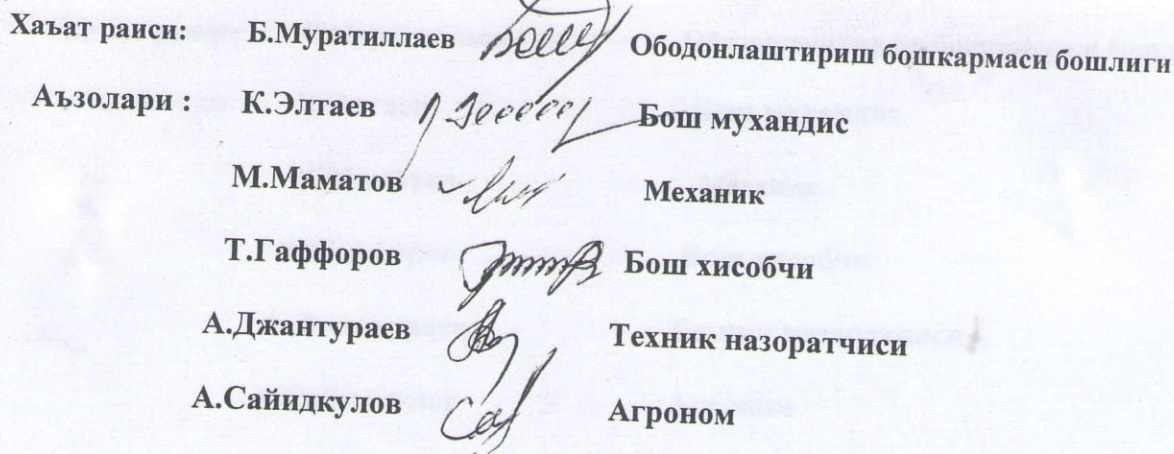 Хаъат раиси: Б.Муратиллаев Ободонлаштириш бошкармаси бошлиги
Аъзолари : К.Элтаев Бош мухандис
М.Маматов Механик
Т.Гаффоров Бош хисобчи
А.Джантураев Техник назоратчиси
А.Сайидкулов Агроном